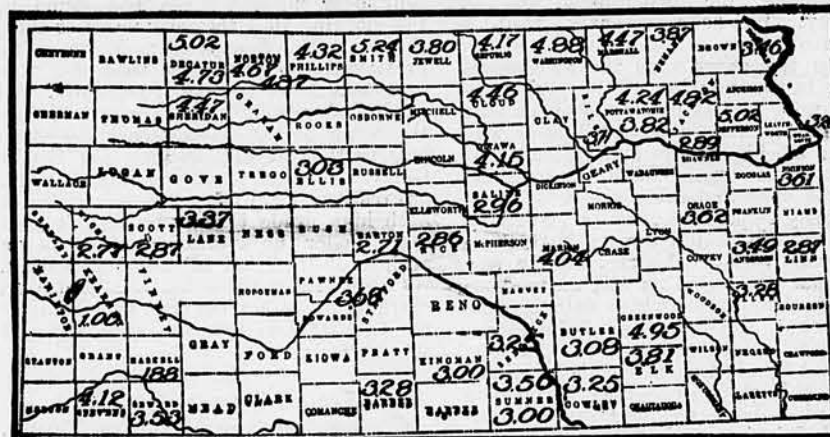 CHEYENNE RAWLINS 5.02 DECATUR 4.73 NORTON 4.67 4.87 4.32 PHILLIPS 5.24 SMITH 3.80 JEWELL 4.17 REPUBLIC 4.88 WASHINGTON 4.47 MARSHALL 3.87 BROWN 3.46
SHERMAN THOMAS 4.47 SHERIDAN GRAHAM ROOKS OSBORNE MITCHELL 4.46 CLOUD CLAY RILEY 3.71 4.24 POTTAWATOMIE 3.82 4.82 JACKSON ATCHISON 5.02 JEFFERSON LEAVENWORTH
WALLACE LOGAN GOVE TREGO 3.03 ELLIS RUSSELL LINCOLN OTTAWA 4.15 SALINE 2.96 DICKINSON GEARY WABAUNSEE 2.89 SHAWNEE DOUGLAS JOHNSON 3.61
GREELEY WICHITA 2.77 SCOTT 2.87 3.37 LANE NESS RUSH BARTON 2.71 ELLSWORTH 2.86 RICE McPHERSON MARION 4.04 MORRIS CHASE LYON OSAGE 3.62 FRANKLIN MIAMI
HAMILTON KEARNY 1.00 FINNEY HODGEMAN PAWNEE 3.68 EDWARDS STAFFORD RENO HARVEY COFFEY 3.49 ANDERSON 2.87 LINN
STANTON GRANT HASKELL 1.88 GRAY FORD KIOWA PRATT KINGMAN 3.00 3.25 SEDGWICK BUTLER 3.08 GREENWOOD 4.95 WOODSON 3.28 BOURBON
MORTON 4.12 STEVENS SEWARD 3.53 MEAD CLARK COMANCHE 3.28 BARBER HARPER 3.50 SUMNER 3.00 3.25 COWLEY 3.81 ELK CHAUTAUQUA WILSON NEOSHO CRAWFORD MONTGOMERY LABETTE CHEROKEE